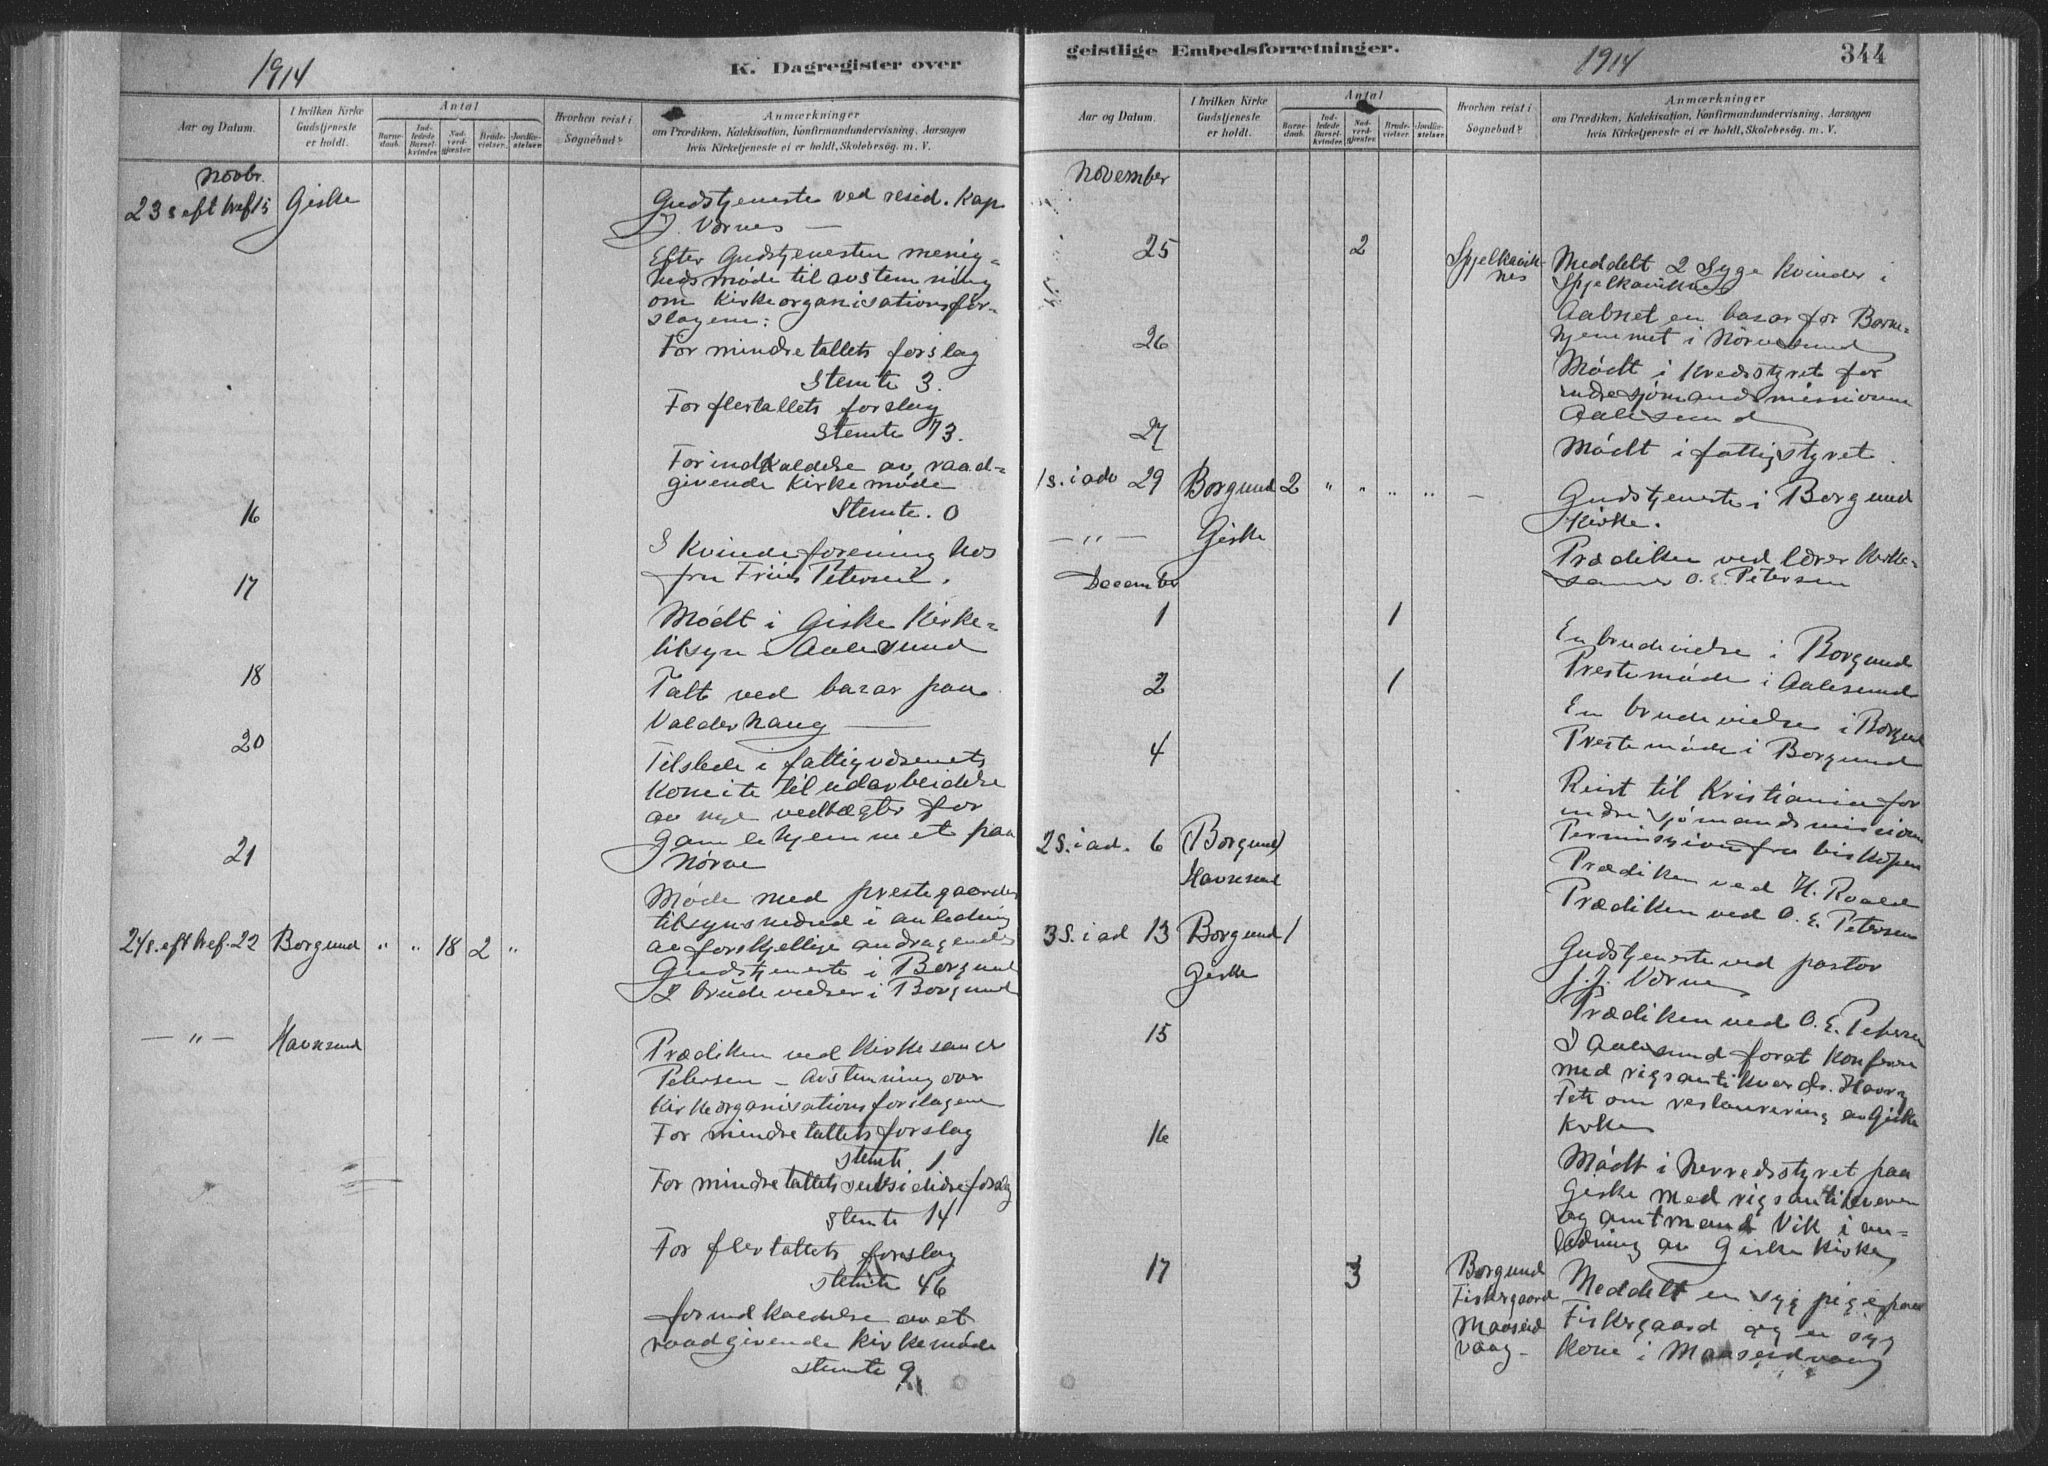 1914
K. Dagregister over
Aar og Datum.
I hvilken Kirke Gudstjeneste er holdt.
Antal
Barnedaab.
Indledede Barselkvinder.
Nadverdgjæster.
Brudevielser.
Jordfæstelser.
Hvorhen reist i Sognebud?
Anmærkninger
om Prædiken, Katekisation, Konfirmandundervisning, Aarsagen
hvis Kirketjeneste ei er holdt, Skolebesøg. m. V.
Novbr.
23 s eft tref 15 Giske Gudstjeneste ved resid. Kap
J. Værnes —
Efter Gudstjenesten menig-
hedsmøde til avstemning
om Kirkeorganisationsfor-
slagene:
For mindretallets forslag
Stemte 3.
For flertallets forslag
Stemte 73.
For indkaldelse av raad-
givende Kirkemøde
Stemte. 0
16
I Kvindeforening hos
fru Friis Petersen.
17
Mødt i Giske Kirke-
tilsyn i Aalesund
18
Talt ved basar paa
Valderhaug —
20
Tilstede i fattigvæsenets
Komite til udarbeidelse
av nye vedtægter for
Gamlehjemmet paa
Nørve
21
Møde med prestegaards
tilsynsmænd i anledning
av forskjellige andragender
24 s. eft tref. 22 Borgund " " 18 2 " Gudstjeneste i Borgund
2 brudevielser i Borgund
— " — Havnsund
Prædiken ved Kirkesanger
Petersen – Avstemning over
Kirkeorganisationsforslagene
For mindretallets forslag
Stemte 1
For mindretallets subsidiære forslag
stemte 14
For flertallets forslag
stemte 46
for indkaldelse av et
raadgivende Kirkemøde
stemte 9
geistlige Embedsforretninger.
1914
344
Aar og Datum.
I hvilken Kirke Gudstjeneste er holdt.
Antal
Barnedaab.
Indledede Barselkvinder.
Nadverdgjæster.
Brudevielser.
Jordfæstelser.
Hvorhen reist i Sognebud?
Anmærkninger
om Prædiken, Katekisation, Konfirmandundervisning, Aarsagen
hvis Kirketjeneste ei er holdt, Skolebesøg. m. V.
November
25 2 Spjelkavik-
nes
Meddelt 2 Syge kvinder i
Spjelkaviknes
26
Aabnet en basar for Barne-
hjemmet i Nørvesund
Mødt i Kredsstyret for
indre sjømandsmissionen
Aalesund
27
Mødt i fattigstyret
1 s. i adv 29 Borgund 2 " " " " –
Gudstjeneste i Borgund
Kirke.
— " — Giske
Prædiken ved lærer Kirke-
sanger O. E. Petersen
December
1 1
En brudevielse i Borgund
Prestemøde i Aalesund
2 1
En brudevielse i Borgund
Prestemøde i Borgund
4
Reist til Kristiania for
indre sjømandsmissionen
Permission fra biskopen
2 S. i ad. 6 (Borgund)
Prædiken ved H. Roald
Havnsund
Prædiken ved O. E. Petersen
3 S. i ad 13 Borgund 1
Gudstjeneste ved pastor
J. J. Værnes
Giske
Prædiken ved O. E. Petersen
15
I Aalesund forat konferere
med rigsantikvar dr. Harry
Fett om restaurering av Giske
Kirke
16
Mødt i herredsstyret paa
Giske med rigsantikvaren
og amtmand Vik i an-
ledning av Giske Kirke
17 3 Borgund
Fiskergaard
Maaseid
vaag-
Meddelt en syg pige paa
Fiskergaard og en syg
Kone i Maaseidvaag